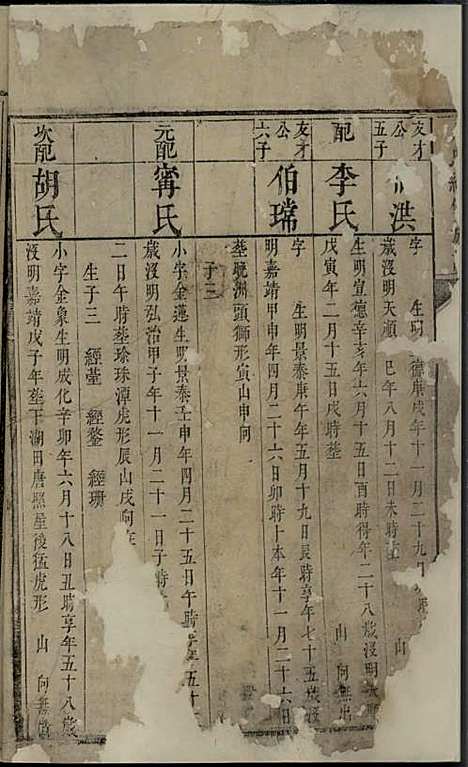 友才公五子
洪
字 生明 德庚戌年十一月二十九日
歲沒明天順 巳年八月十二日未時
配
李氏
生明宣德辛亥年六月十五日酉時得年二十八歲沒明天順
戊寅年二月十五日戌時塟 山 向無出
友才公六子
伯瑞
字 生明景泰庚午年五月十九日辰時享年七十五歲沒
明嘉靖甲申年四月二十六日卯時 本年十一月二十六日
塟 洲頭獅形寅山申向
子三
元配
甯氏
小字金蓮生明景泰壬申年四月二十五日午時 年五十
歲沒明弘治甲子年十一月二十一日子時
二日午時塟 珠潭虎形辰山戌向
生子三 經 經 經珊
次配
胡氏
小字金象生明成化辛卯年六月十八日丑時享年五十八歲
沒明嘉靖戊子年塟下湖田唐照屋後猛虎形 山 向無